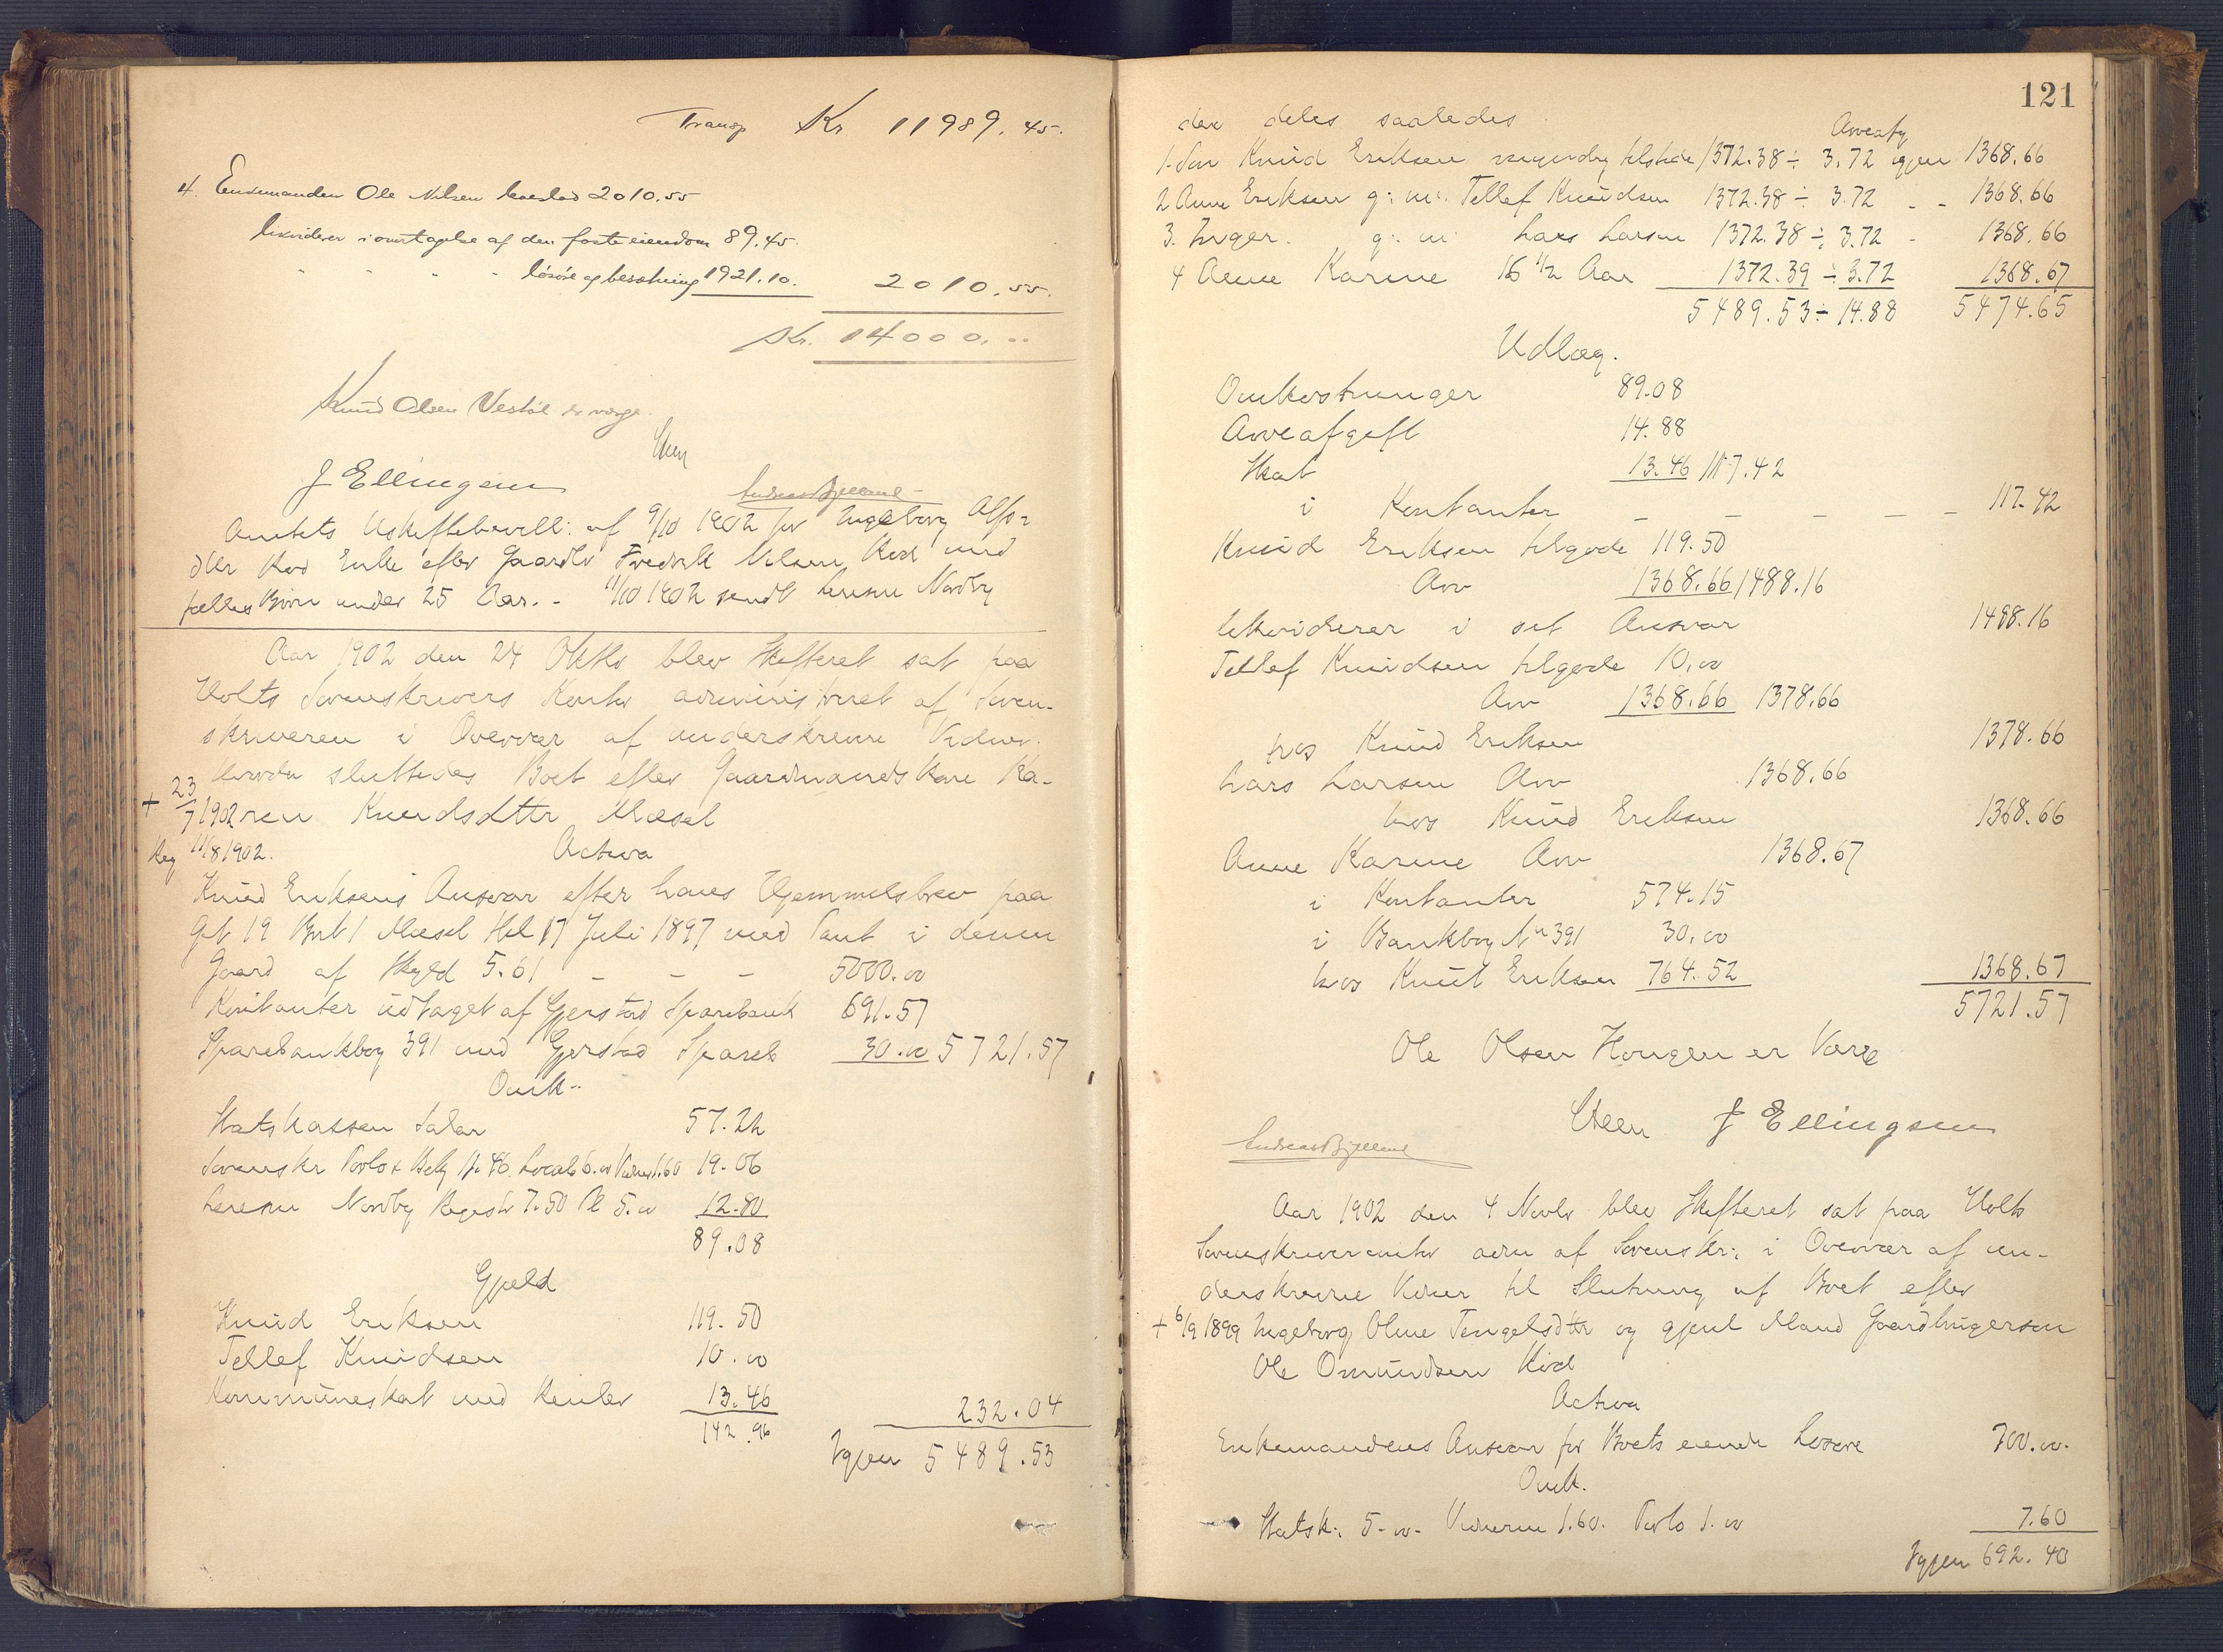 Transp Kr. 11989.45.
4. Enkemanden Ole Nilsen 2010.55
likviderer i overtagelse af den faste eiendom 89.45.
" " " - løsøre og besætning 1921.10. 2010.55.
Kr. 14000. ..
Knud Olsen Vestøl er værge.
Steen
J Ellingsen
Andreas Bjelland
Amtets Uskiftebevill: af 9/10 1902 for Ingeborg Alfs-
dtr Kod Enke efter Gaardbr Fredrik Nilsen Kod med
fælles Børn under 25 Aar. - 11/10 1902 sendt Lensm Nordby
Aar 1902 den 24 Oktbr blev Skifteret sat paa
Holts Sorenskrivers Kontor administreret af Soren-
skriveren i Overvær af underskrevne Vidner.
Hvorda sluttedes Boet efter Gaardmandskone Ka-
+ 23/7 1902 ren Knudsdtter Mæsel
Reg 11/8 1902. Activa
Knud Eriksens Ansvar efter hans Hjemmelsbrev paa
Gt 19 Bnt 1 Mæsel thl 17 Juli 1897 med Pant i denne
Gaard af Skyld 5.61 - - - 5000.00
Kontanter udtaget af Gjerstad Sparebank 691.57
Sparebankbog 391 med Gjerstad Spareb 30.00 5721.57
Omk-
Statskassen Salær 57.22
Sorenskr Porto & Bek 11.46. Locale 6.00 Vidner 1.60 19.06
Lensm Nordby Registr 7.50 Pl 5.00 12.80
89.08
Gjæld
Knud Eriksen 119.50
Tellef Knudsen 10.00
Kommuneskat med Renter 13.46 232.04
142.96 Igjen 5489.53
121
der deles saaledes
Arveafg
1. Søn Knud Eriksen myndig tilstede 1372.38 ÷ 3.72 igjen 1368.66
2 Anne Eriksen g: m: Tellef Knudsen 1372.38 ÷ 3.72 - - 1368.66
3. Inger. g: m: Lars Larsen 1372.38 ÷ 3.72 - 1368.66
4 Anne Karine 16 1/2 Aar 1372.39 ÷ 3.72 1368.67
5489.53 ÷ 14.88 5474.65
Udlæg.
Omkostninger 89.08
Arveafgift 14.88
Skat 13.46 117.42
i Kontanter - - - - - 117.42
Knud Eriksen tilgode 119.50
Arv 1368.66 1488.16
likviderer i sit Ansvar 1488.16
Tellef Knudsen tilgode 10.00
Arv 1368.66 1378.66
hos Knud Eriksen 1378.66
Lars Larsen Arv 1368.66
hos Knud Eriksen 1368.66
Anne Karine Arv 1368.67
i Kontanter 574.15
i Bankbog No 391 30.00
hos Knut Eriksen 764.52 1368.67
5721.57
Ole Olsen Hougen er Værge
Steen J Ellingsen
Andreas Bjelland
Aar 1902 den 4 Novbr blev Skifteret sat paa Holts
Sorenskriverkontor adm af Sorenskr: i Overvær af un-
derskrevne Vidner til Slutning af Boet efter
+ 6/9 1899 Ingeborg Oline Tengelsdtr og gjenl Mand Gaardbruger
Ole Omundsen Kod
Activa
Enkemandens Ansvar for Boets eiende Løsøre 700.00.
Omk.
Statsk: 5-00- Vidnerne 1.60. Porto 1.00 7.60
Igjen 692.40